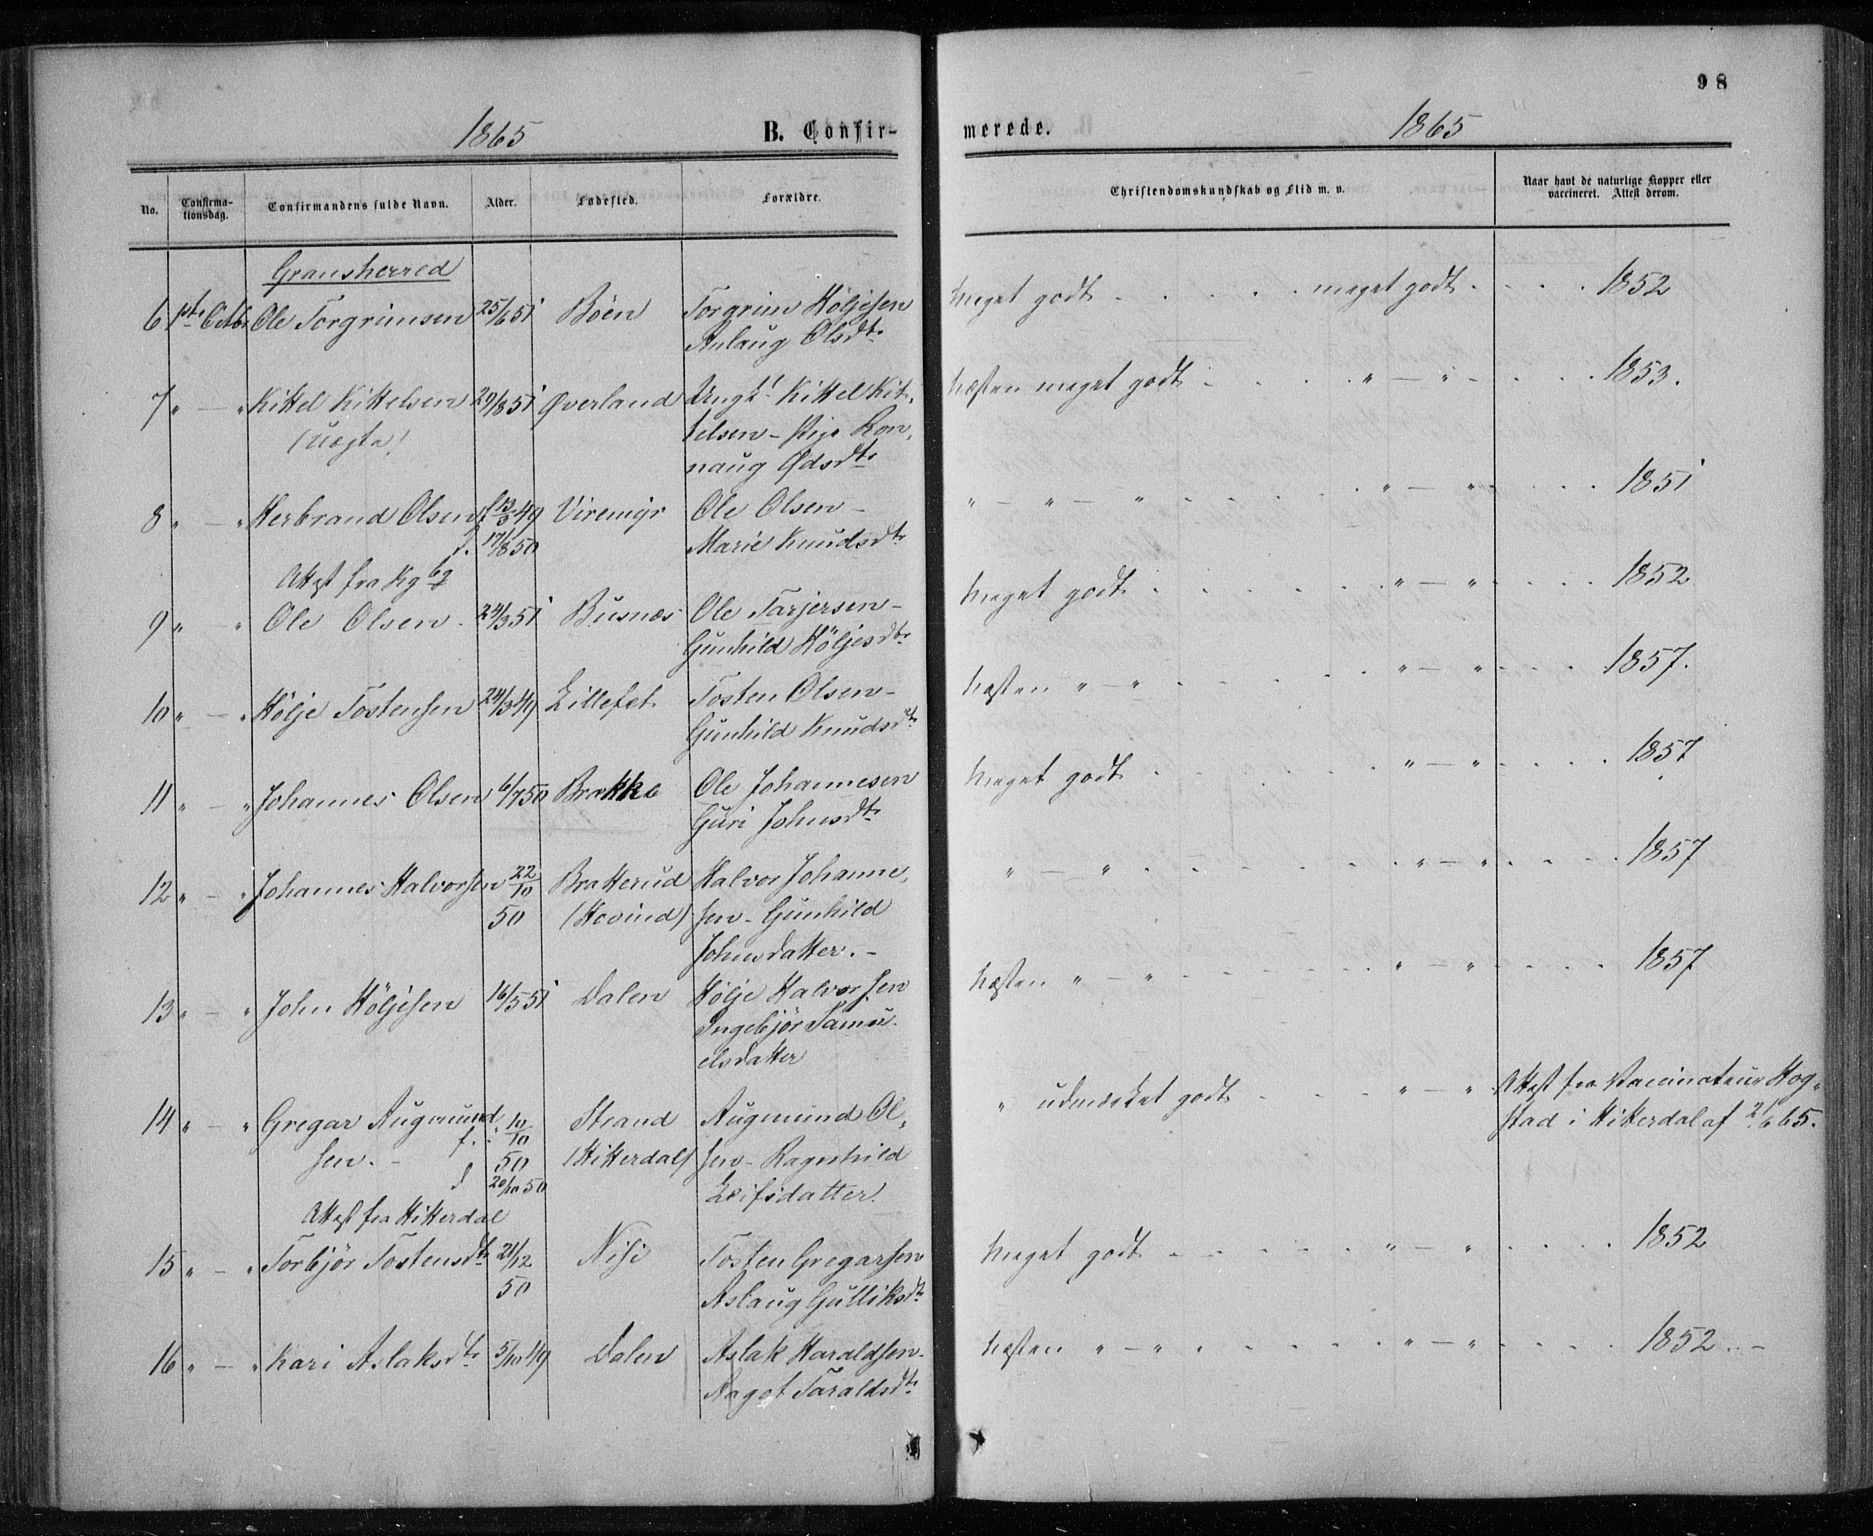 98
1865 B. Confir-
merede. 1865
No. Confirma-tionsdag. Confirmandens fulde Navn. Alder. Fødested. Forældre.
Christendomskundskab og Flid m. v. Naar havt de naturlige Kopper eller vaccineret. Attest derom.
Gransherred
6 1ste Octbr Ole Torgrimsen 25/6 51 Böen Torgrim Höljesen
Anlaug Olsdtr
Meget godt . . . . . meget godt . . . 1852
7 " — " Kittel Kittelsen 29/8 51 Øverland Ungk. Kittel Kit-
(uægte) telsen - Pige Lon-
naug Ødsdtr
Næsten meget godt . . . . " — " . . . . 1853.
8 " — " Herbrand Olsen f 13/3 49 Viremyr Ole Olsen -
d. 17/8 50 Marie Knudsdtr
" — " — " . . . . . " — " . . . 1851
Attest fra Kg
9 " " Ole Olsen 24/3 51 Busnæs Ole Tarjersen -
Gunhild Höljesdtr
Meget godt . . . . . " — " . . . 1852
10 " — " Hölje Tostensen 24/3 49 Lillefet Tosten Olsen -
Gunhild Knudsdtr
Næsten " — " . . . . . " — " . . . 1857.
11 " — " Johannes Olsen 6/7 50 Brække Ole Johannesen
Guri Johnsdtr
Meget godt . . . . . " — " . . . 1857
12 " — " Johannes Halvorsen 22/10 Bratterud Halvor Johanne-
50 (Hovind) sen - Gunhild
Johnsdatter. -
" — " . . . . . " — " . . . 1857
13 " — " John Höljesen 16/5 51 Dalen Hölje Halvorsen
Ingebjör Samu-
elsdatter
Næsten " — " . . . . . " — " . . . 1857
14 " — " Gregar Augmund f. 10/10 Strand Augmund Ol-
sen. - 50 (Hitterdal) sen - Ragnhild
d 20/10 50 Leifsdatter
Attest fra Hitterdal
" udmærket godt . . . " — " Attest fra Vaccinateur Hog-
stad i Hitterdal af 2/6 65.
15 " — " Torbjör Tostensdtr 21/12 Nisi Tosten Gregarsen
50 Aslaug Gulliksdtr
Meget godt . . . . . " — " . . . 1852
16 " — " Kari Aslaksdtr 5/10 49 Dalen Aslak Haraldsen -
Aagot Taraldsdtr
Næsten " — " . . . . . " — " . . . 1852 . . -